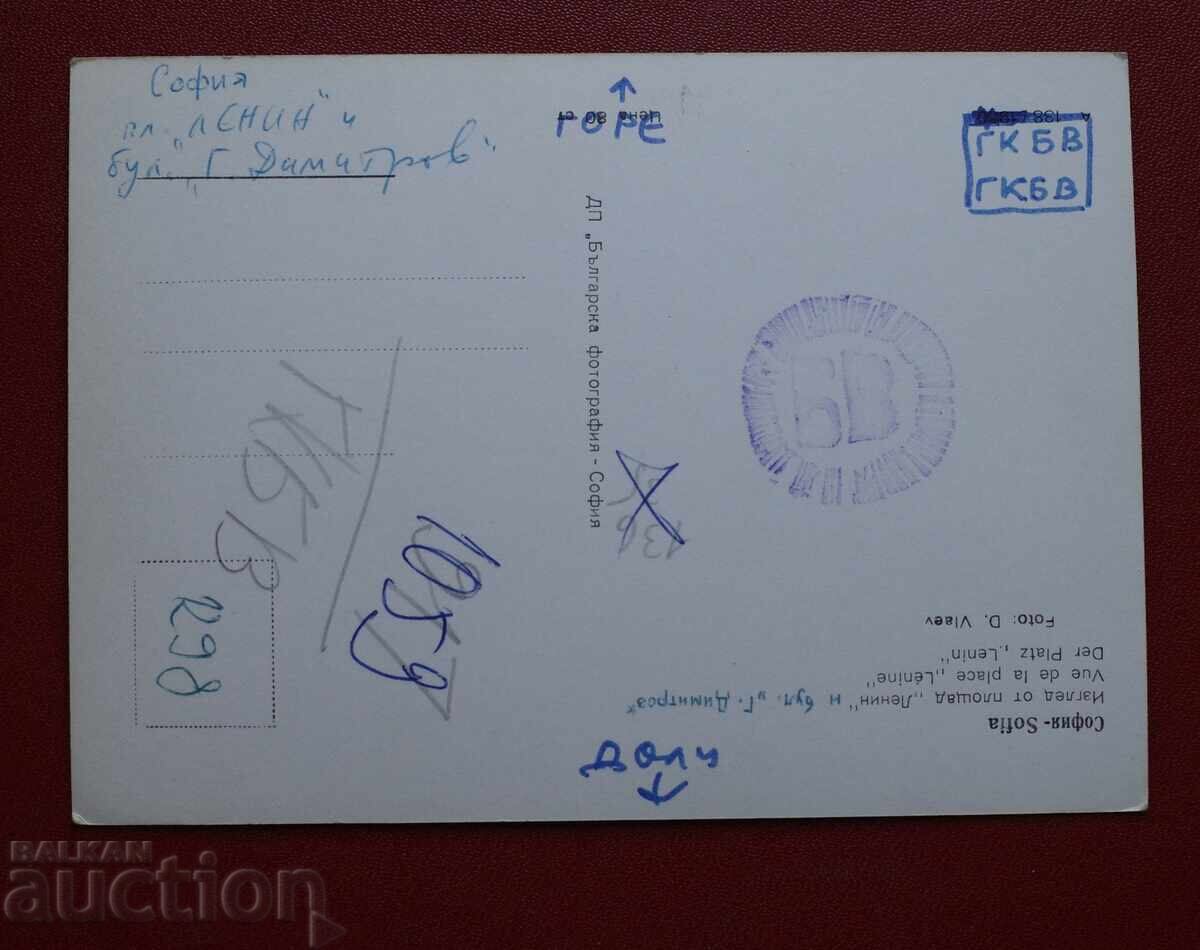 София
пл. „ЛЕНИН" и
бул. „Г. Димитров"
↑
ГОРЕ
Цена 80 ст
А
ГКБВ
ГКБВ
ДП „Българска фотография - София
БВ
ГКБВ
1059
136
298
София - Sofia
Изглед от площад „Ленин" и бул. „Г. Димитров"
Vue de la place „Lénine"
Der Platz „Lenin"
Foto: D. Vlaev
ДОЛУ
↓
BALKAN
auction